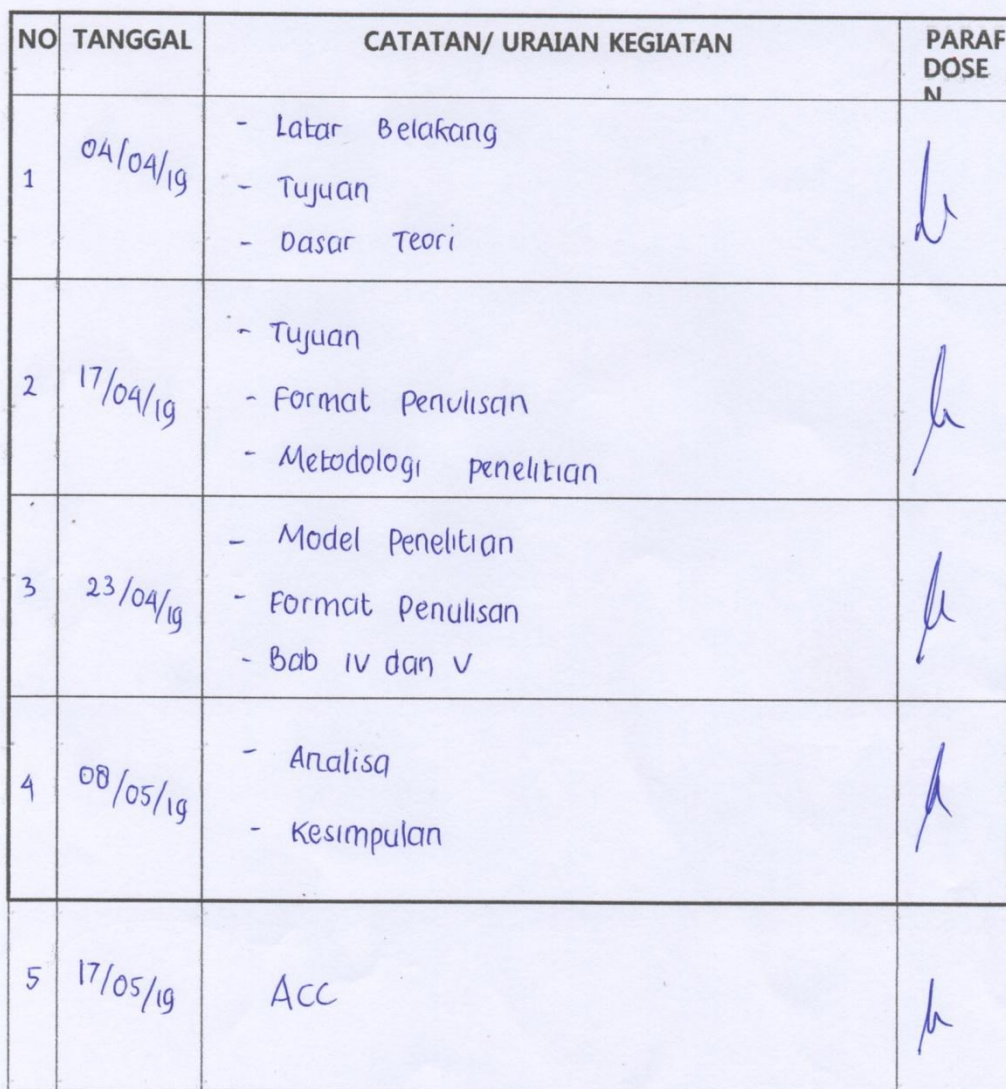 NO TANGGAL CATATAN/ URAIAN KEGIATAN PARAF
DOSE
N
1 04/04/19 - Latar Belakang
- Tujuan
- Dasar Teori
2 17/04/19 - Tujuan
- Format Penulisan
- Metodologi penelitian
3 23/04/19 - Model Penelitian
- Format Penulisan
- Bab IV dan V
4 08/05/19 - Analisa
- Kesimpulan
5 17/05/19 Acc